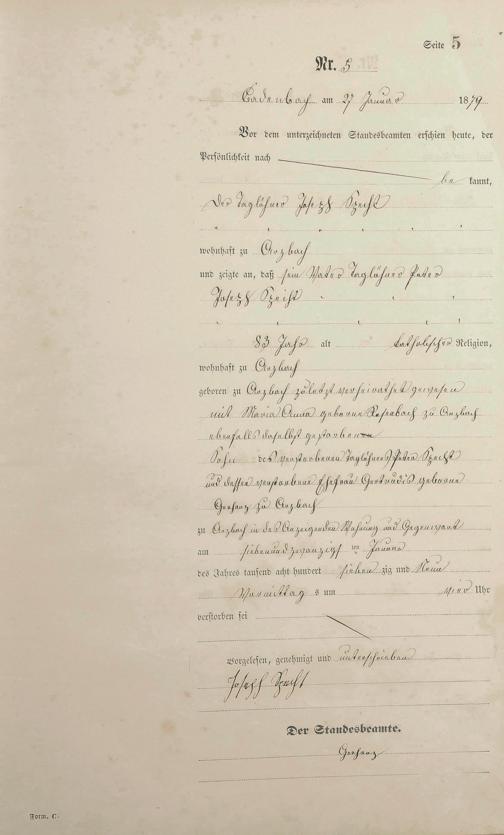 Seite 5
Nr. 5
Cadenbach am 27 Januar 1879
Vor dem unterzeichneten Standesbeamten erschien heute, der
Persönlichkeit nach
be kannt,
der Taglöhner Joseph Specht
wohnhaft zu Arzbach
und zeigte an, daß sein Vater Taglöhner Peter
Joseph Specht
83 Jahr alt katholischer Religion,
wohnhaft zu Arzbach
geboren zu Arzbach zuletzt verheirathet gewesen
mit Maria Anna geborne Rosenbach zu Arzbach
ebenfalls daselbst gestorben
Sohn des verstorbenen Taglöhners Peter Specht
und dessen verstorbene Ehefrau Gertrudis geborne
zu Arzbach
zu Arzbach in des Anzeigenden Wohnung und Gegenwart
am siebenundzwanzigsten Januar
des Jahres tausend acht hundert sieben zig und Neun
Vormittag s um vier Uhr
verstorben sei
Vorgelesen, genehmigt und unterschrieben
Joseph Specht
Der Standesbeamte.
Form. C.